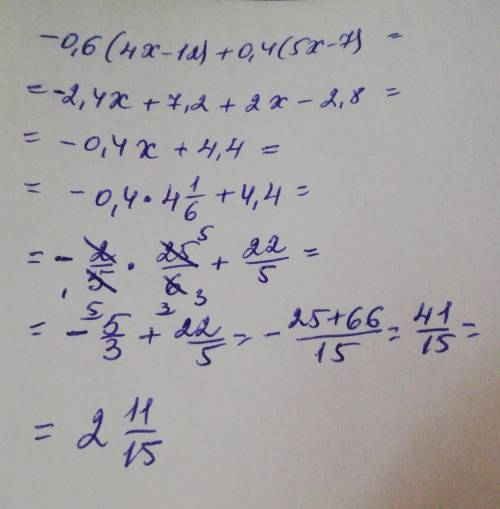 -0,6(4x-12)+0,4(5x-7) =
= -2,4x + 7,2 + 2x - 2,8 =
= -0,4x + 4,4 =
= -0,4 • 4 1/6 + 4,4 =
= - 2/5 • 25/6 + 22/5 =
= - 5/3 + 22/5 = - 25+66/15 = 41/15 =
= 2 11/15